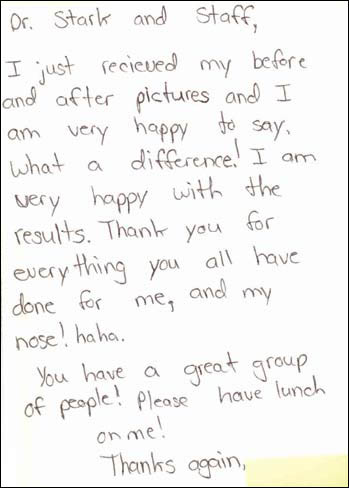 Dr. Stark and Staff,
I just recieved my before
and after pictures and I
am very happy to say,
what a difference! I am
very happy with the
results. Thank you for
everything you all have
done for me, and my
nose! haha.
You have a great group
of people! Please have lunch
on me!
Thanks again,